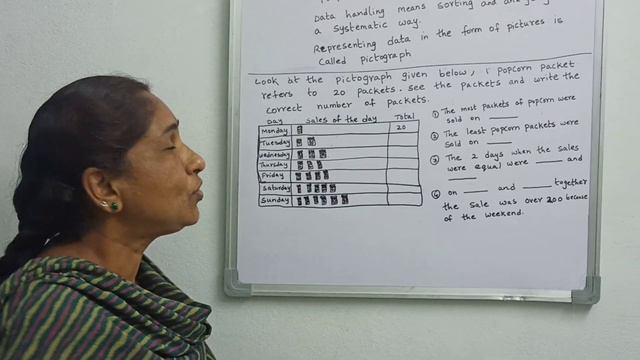 Data handling means sorting and
a systematic way.
Representing data in the form of pictures is
called pictograph
Look at the pictograph given below, 1 popcorn packet
refers to 20 packets. See the packets and write the
correct number of packets.
Day Sales of the day Total
Monday 20
Tuesday
Wednesday
Thursday
Friday
Saturday
Sunday
① The most packets of popcorn were
sold on
② The least popcorn packets were
sold on
③ The 2 days when the sales
were equal were and
④ on and together
the sale was over 200 because
of the weekend.